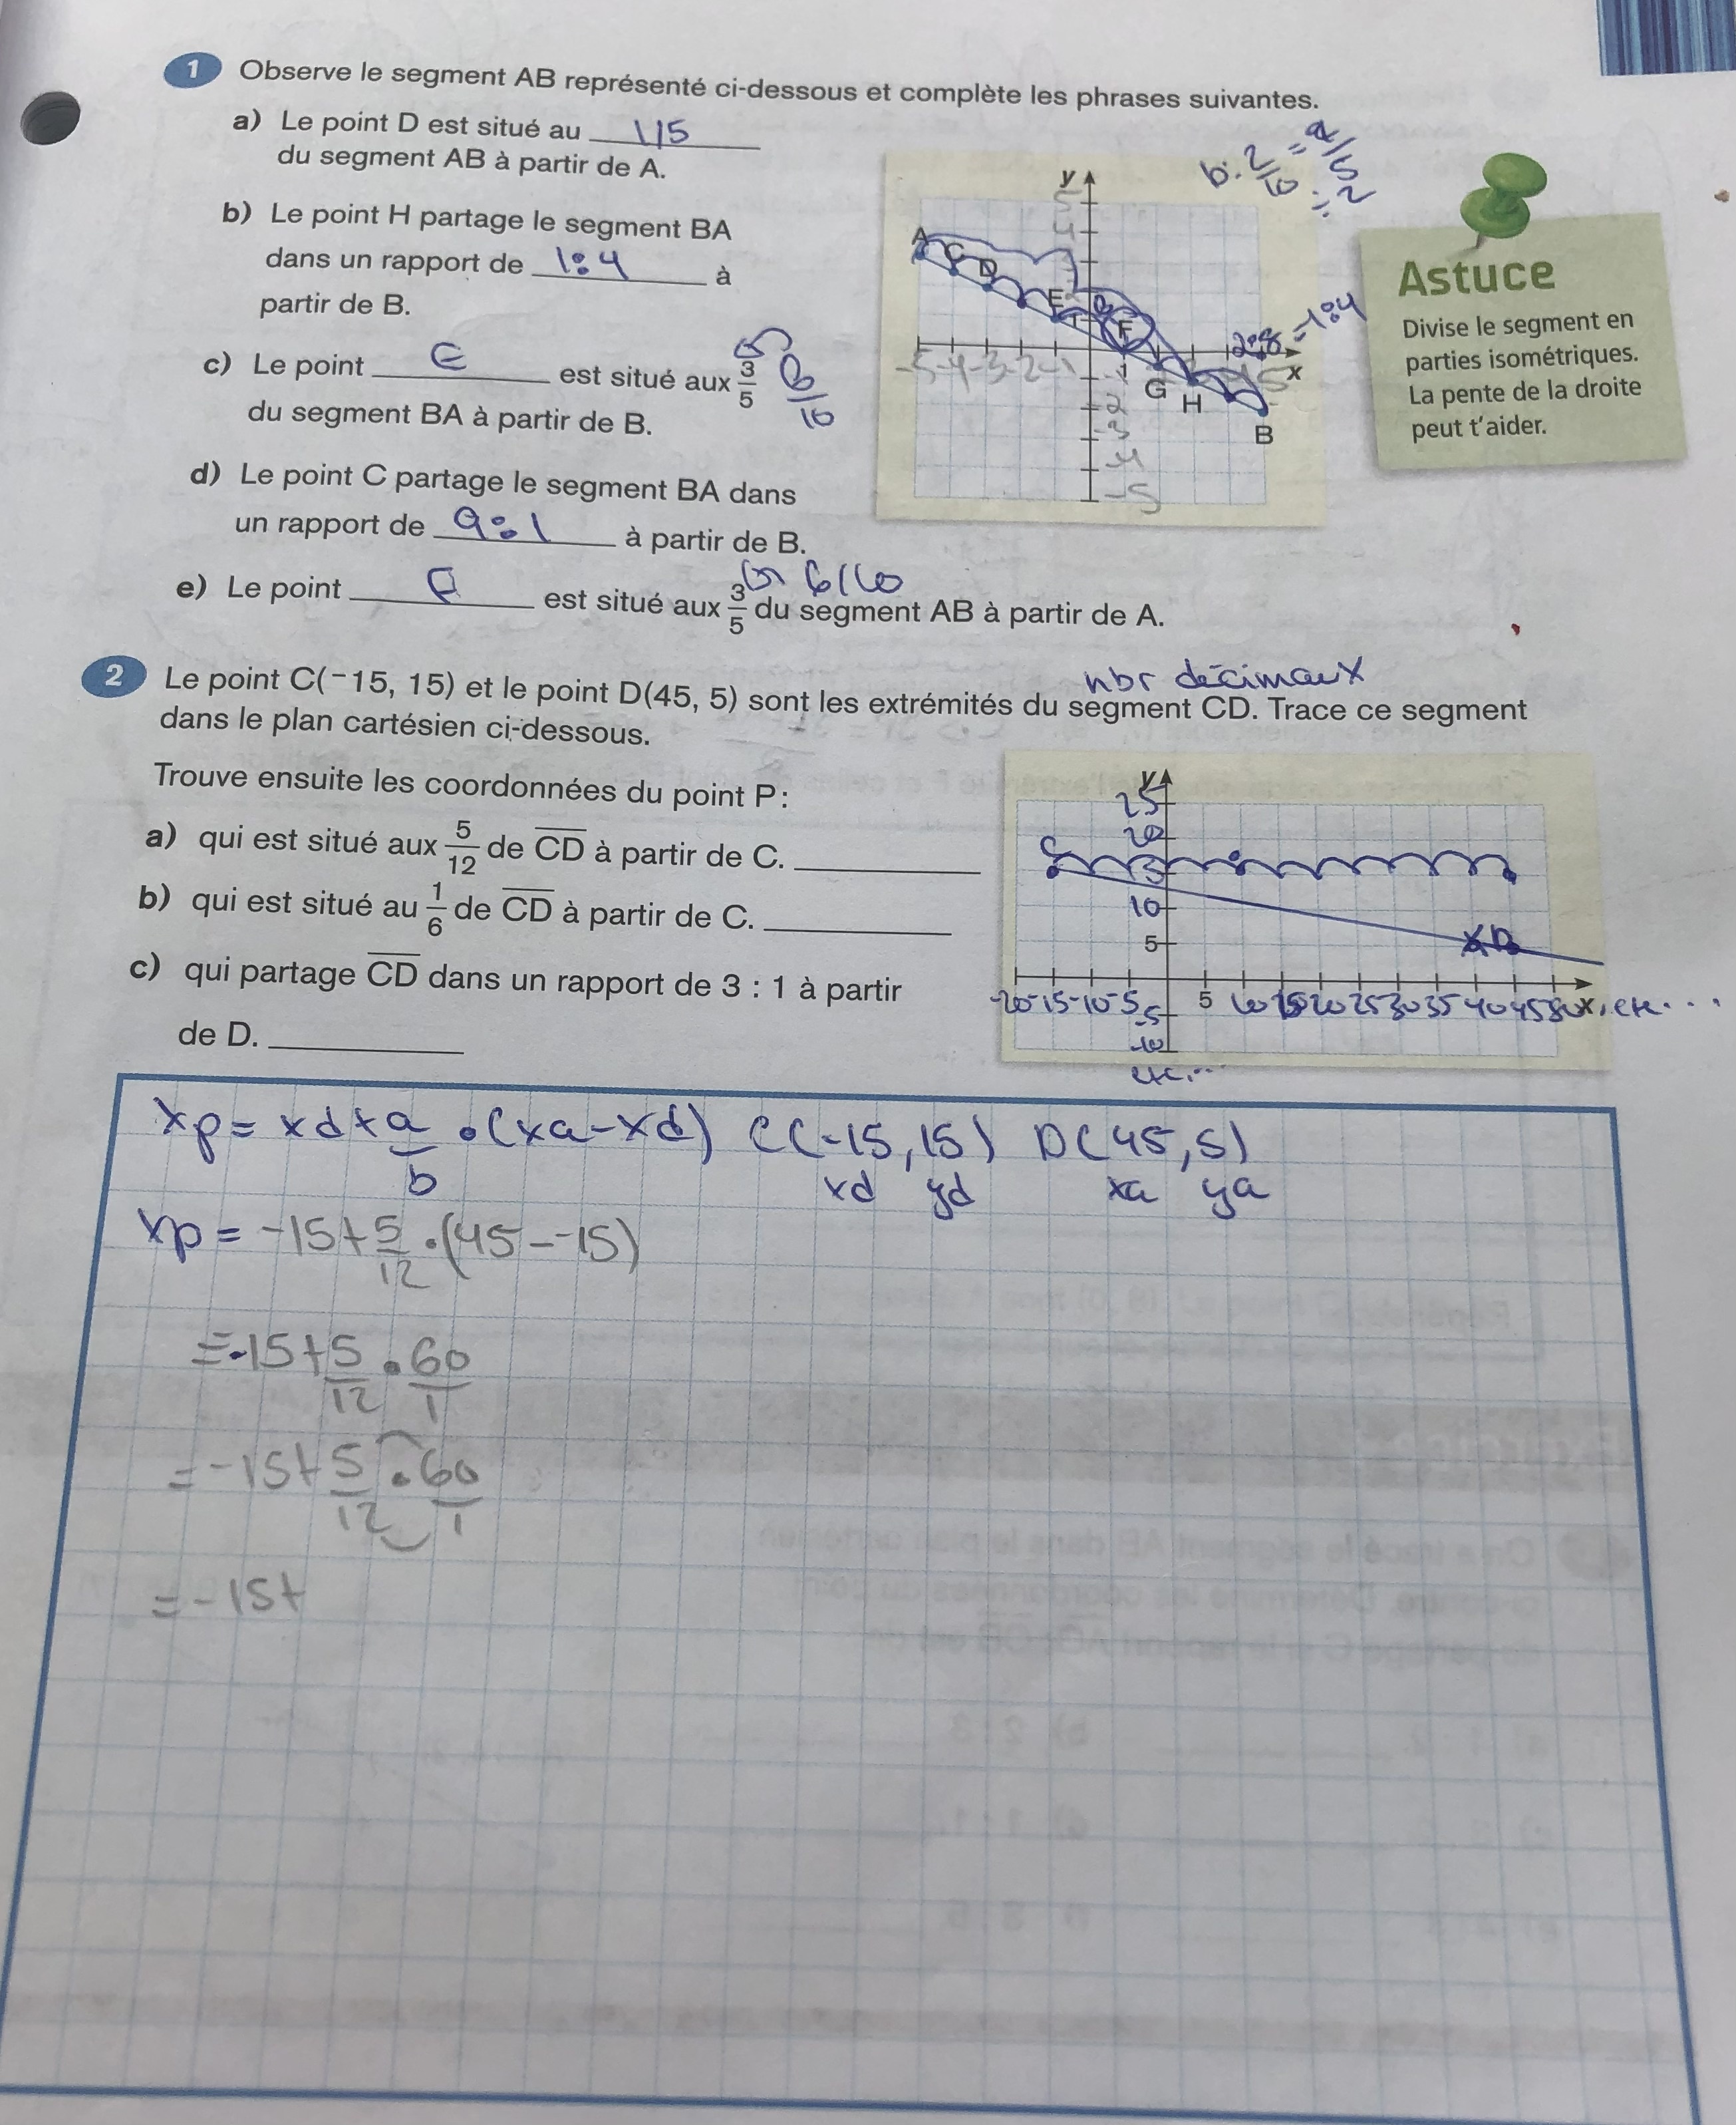 1 Observe le segment AB représenté ci-dessous et complète les phrases suivantes.
a) Le point D est situé au 1/5
du segment AB à partir de A.
b) Le point H partage le segment BA
dans un rapport de 1:4 à
partir de B.
c) Le point E est situé aux 3/5 6/10
du segment BA à partir de B.
d) Le point C partage le segment BA dans
un rapport de 9:1 à partir de B.
e) Le point F est situé aux 3/5 du segment AB à partir de A.
6/10
b: 2/10 = /5
÷2
y
5
4
A C D E F G H B
-5 -4 -3 -2 -1 1 5 x
2:8 = 1:4
-2
-3
-4
-5
Astuce
Divise le segment en
parties isométriques.
La pente de la droite
peut t'aider.
nbr décimaux
2 Le point C(-15, 15) et le point D(45, 5) sont les extrémités du segment CD. Trace ce segment
dans le plan cartésien ci-dessous.
Trouve ensuite les coordonnées du point P :
a) qui est situé aux 5/12 de CD à partir de C.
b) qui est situé au 1/6 de CD à partir de C.
c) qui partage CD dans un rapport de 3 : 1 à partir
de D.
y
25
20
C
15
10
5
D
-20 -15 -10 -5 5 10 15 20 25 30 35 40 45 50 x, etc...
-5
-10
etc...
xp = xd + a/b • (xa - xd) C(-15, 15) D(45, 5)
xd yd xa ya
xp = -15 + 5/12 • (45 - -15)
= -15 + 5/12 • 60/1
= -15 + 5/12 • 60/1
= -15 +